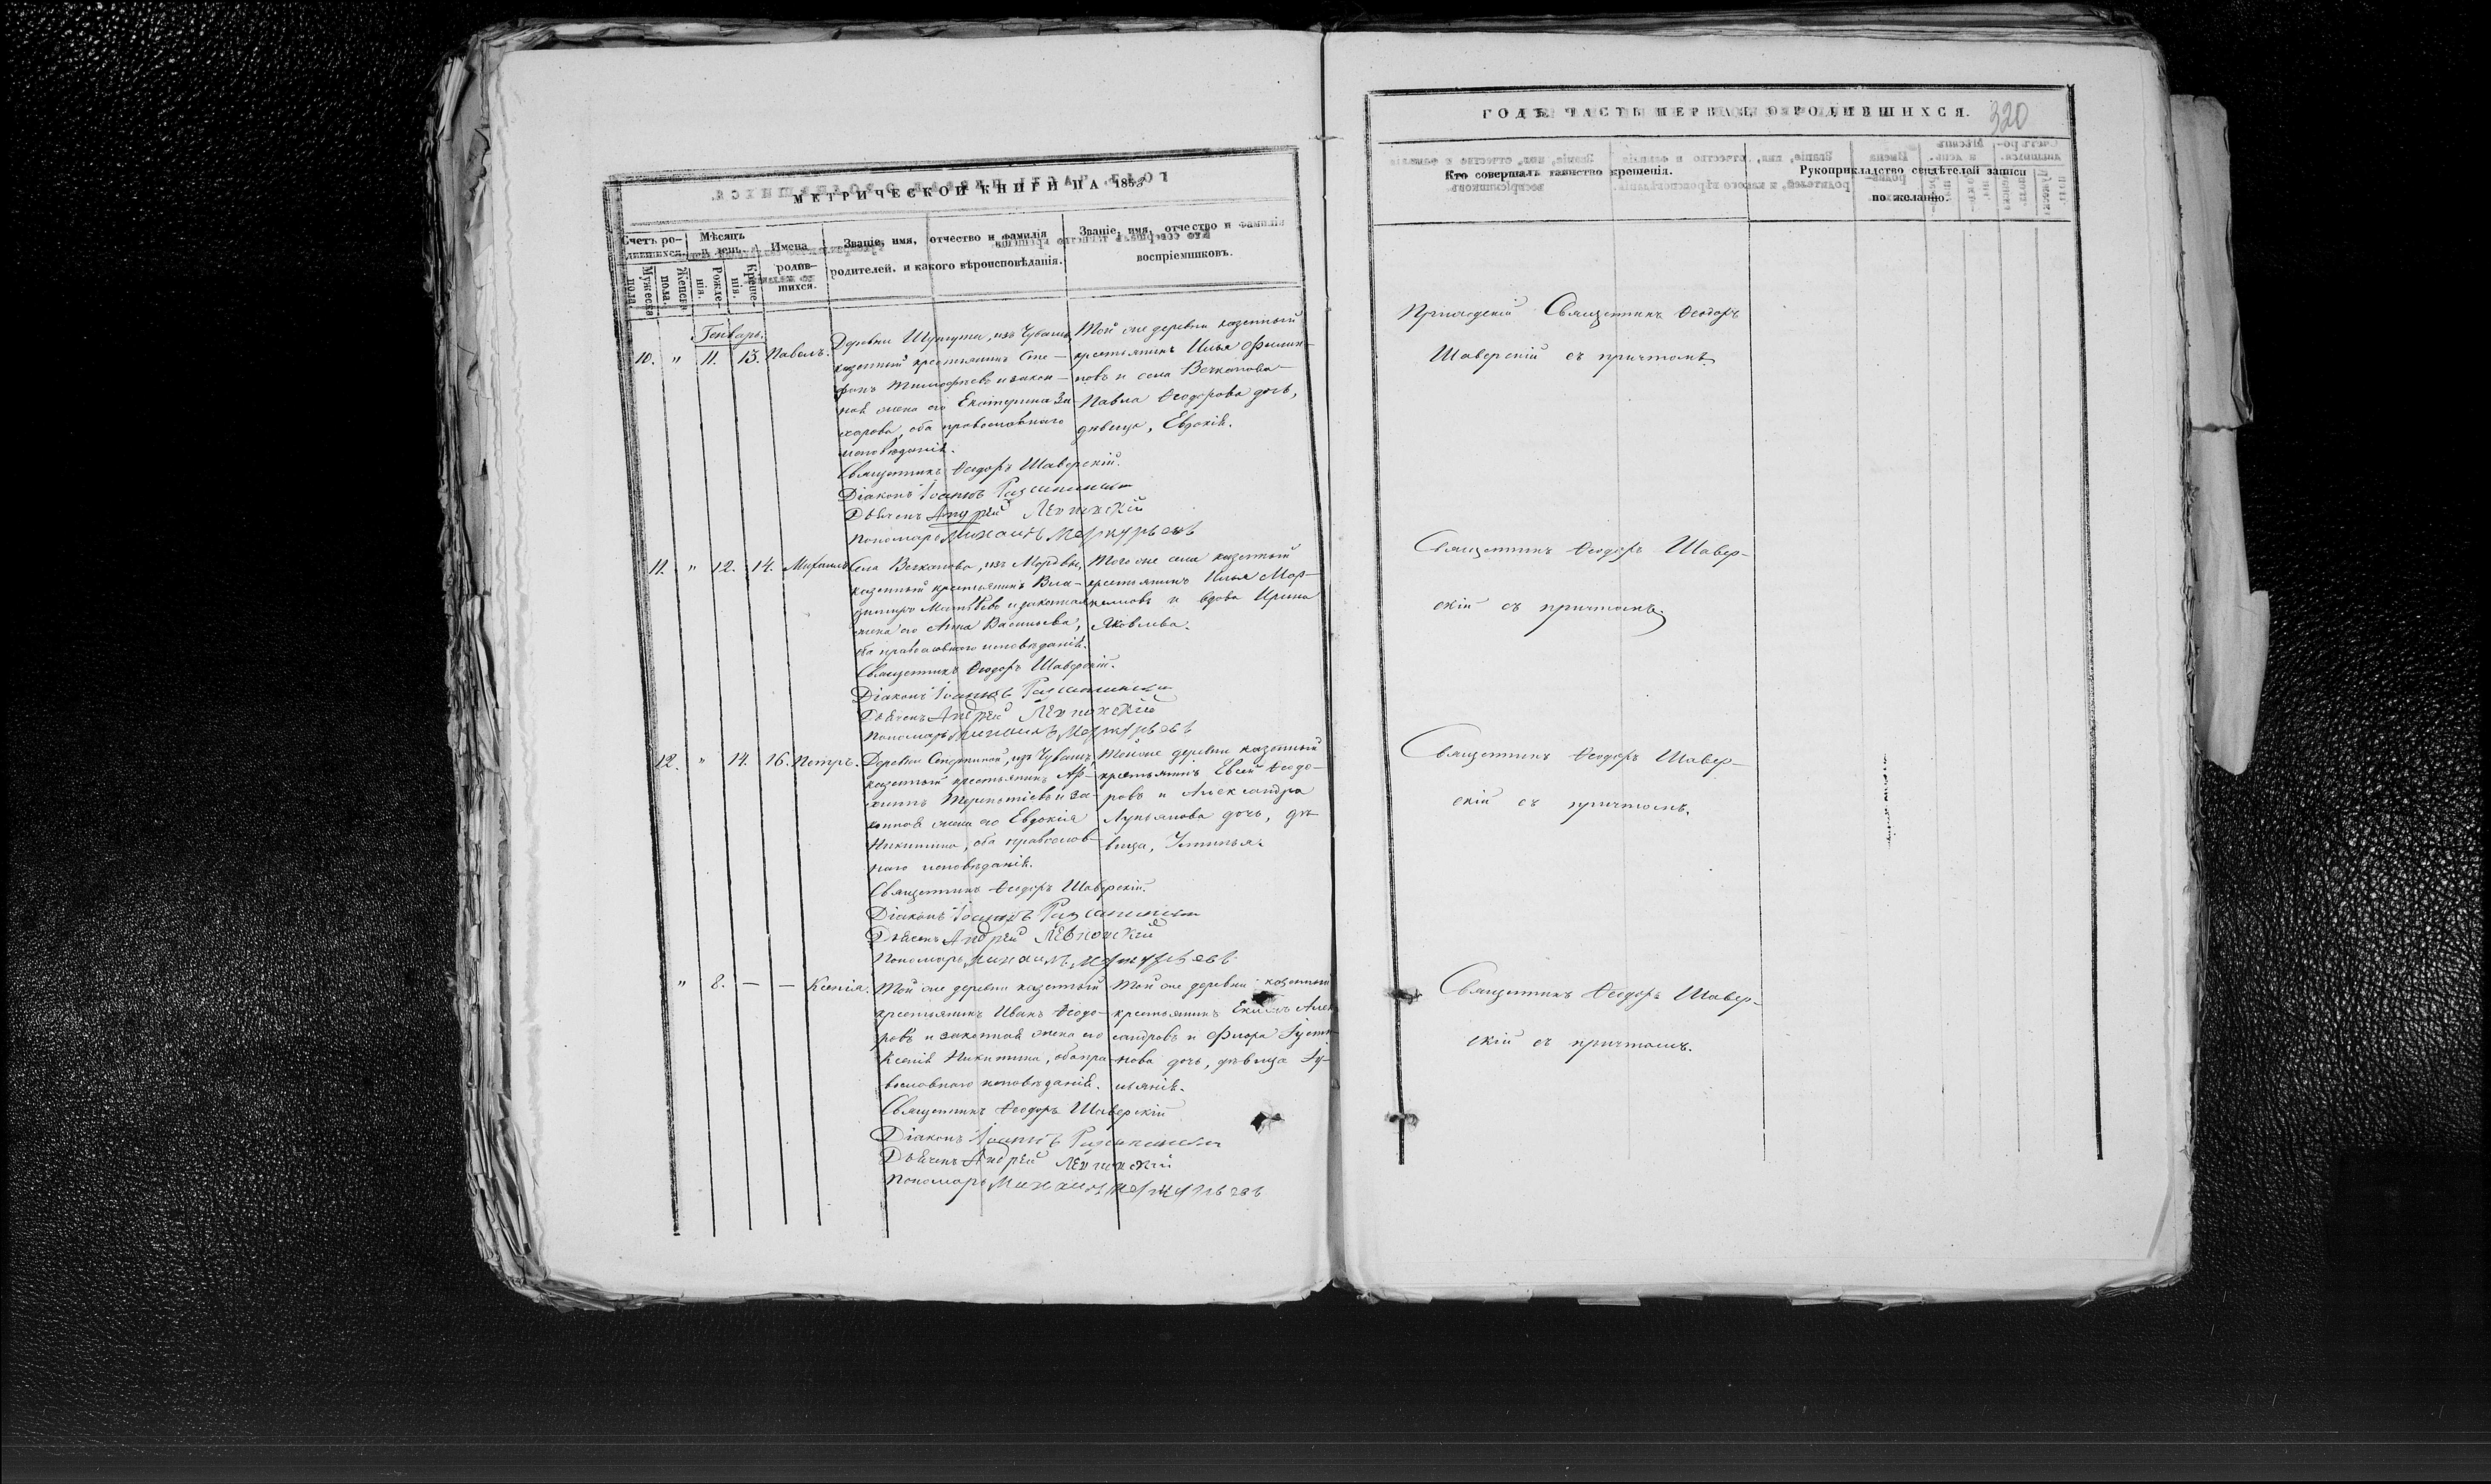 МЕТРИЧЕСКОЙ КНИГИ НА 1853
Счетъ ро-
дившихся.
Мѣсяцъ
и день.
Имена
родив-
шихся.
Званіе, имя, отчество и фамилія
родителей, и какого вѣроисповѣданія.
Званіе, имя, отчество и фамилія
воспріемниковъ.
Мужеска
пола.
Женска
пола.
Рожде-
нія.
Креще-
нія.
Генварь.
10. " 11. 13. Павелъ.
Деревни Шунгута, изъ Чувашъ,
казенный крестьянинъ Сте-
фанъ Тимофѣевъ и закон-
ная жена его Екатерина За-
харова, оба православнаго
исповѣданія.
Священникъ Ѳеодоръ Шаверскій.
Діаконъ Іоаннъ
Дьячекъ Андрей
Пономарь Михаилъ Меркурьевъ
Той же деревни казенный
крестьянинъ Илья Филип-
повъ и села Вечканова
Павла Ѳеодорова дочь,
дѣвица, Евдокія.
11. " 12. 14. Михаилъ
Села Вечканова, изъ Мордвы,
казенный крестьянинъ Вла-
димиръ Матвѣевъ и законная
жена его Анна Васильева,
оба православнаго исповѣданія.
Священникъ Ѳеодоръ Шаверскій.
Діаконъ Іоаннъ
Дьячекъ Андрей
Пономарь Михаилъ Меркурьевъ
Того же села казенный
крестьянинъ Илья Мар-
келловъ и вдова Ирина
Яковлева.
12. " 14. 16. Петръ.
Деревни изъ Чувашъ,
казенный крестьянинъ Ар-
хиппъ Терентіевъ и за-
конная жена его Евдокія
Никитина, оба православ-
наго исповѣданія.
Священникъ Ѳеодоръ Шаверскій.
Діаконъ Іоаннъ
Дьячекъ Андрей
Пономарь Михаилъ Меркурьевъ
Той же деревни казенный
крестьянинъ Евсей Ѳеодо-
ровъ и Александра
Лукьянова дочь, дѣ-
вица, Устинья.
" 8. — — Ксенія.
Той же деревни казенный
крестьянинъ Иванъ Ѳеодо-
ровъ и законная жена его
Ксенія Никитина, оба пра-
вославнаго исповѣданія.
Священникъ Ѳеодоръ Шаверскій
Діаконъ Іоаннъ
Дьячекъ Андрей
Пономарь Михаилъ Меркурьевъ
Той же деревни казенный
крестьянинъ Алек-
сандровъ и Флора
дочь, дѣвица Іу-
ліанія.
ГОДЪ ЧАСТЬ ПЕРВАЯ, О РОДИВШИХСЯ.
320
Кто совершалъ таинство крещенія.
Рукоприкладство свидѣтелей записи
по желанію.
Приходскій Священникъ Ѳеодоръ
Шаверскій съ причтомъ.
Священникъ Ѳеодоръ Шавер-
скій съ причтомъ.
Священникъ Ѳеодоръ Шавер-
скій съ причтомъ.
Священникъ Ѳеодоръ Шавер-
скій съ причтомъ.